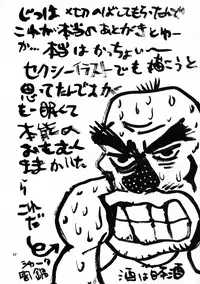 じつは〆切のばしてもらったので
これが本当のあとがきじゅー
か…本当はかっちょいー
セクシーイラストでも描こうと
思ってたんですが
もー眠くて
本能の
おもむく
ままかいた
ら
これだ
酒は日本酒